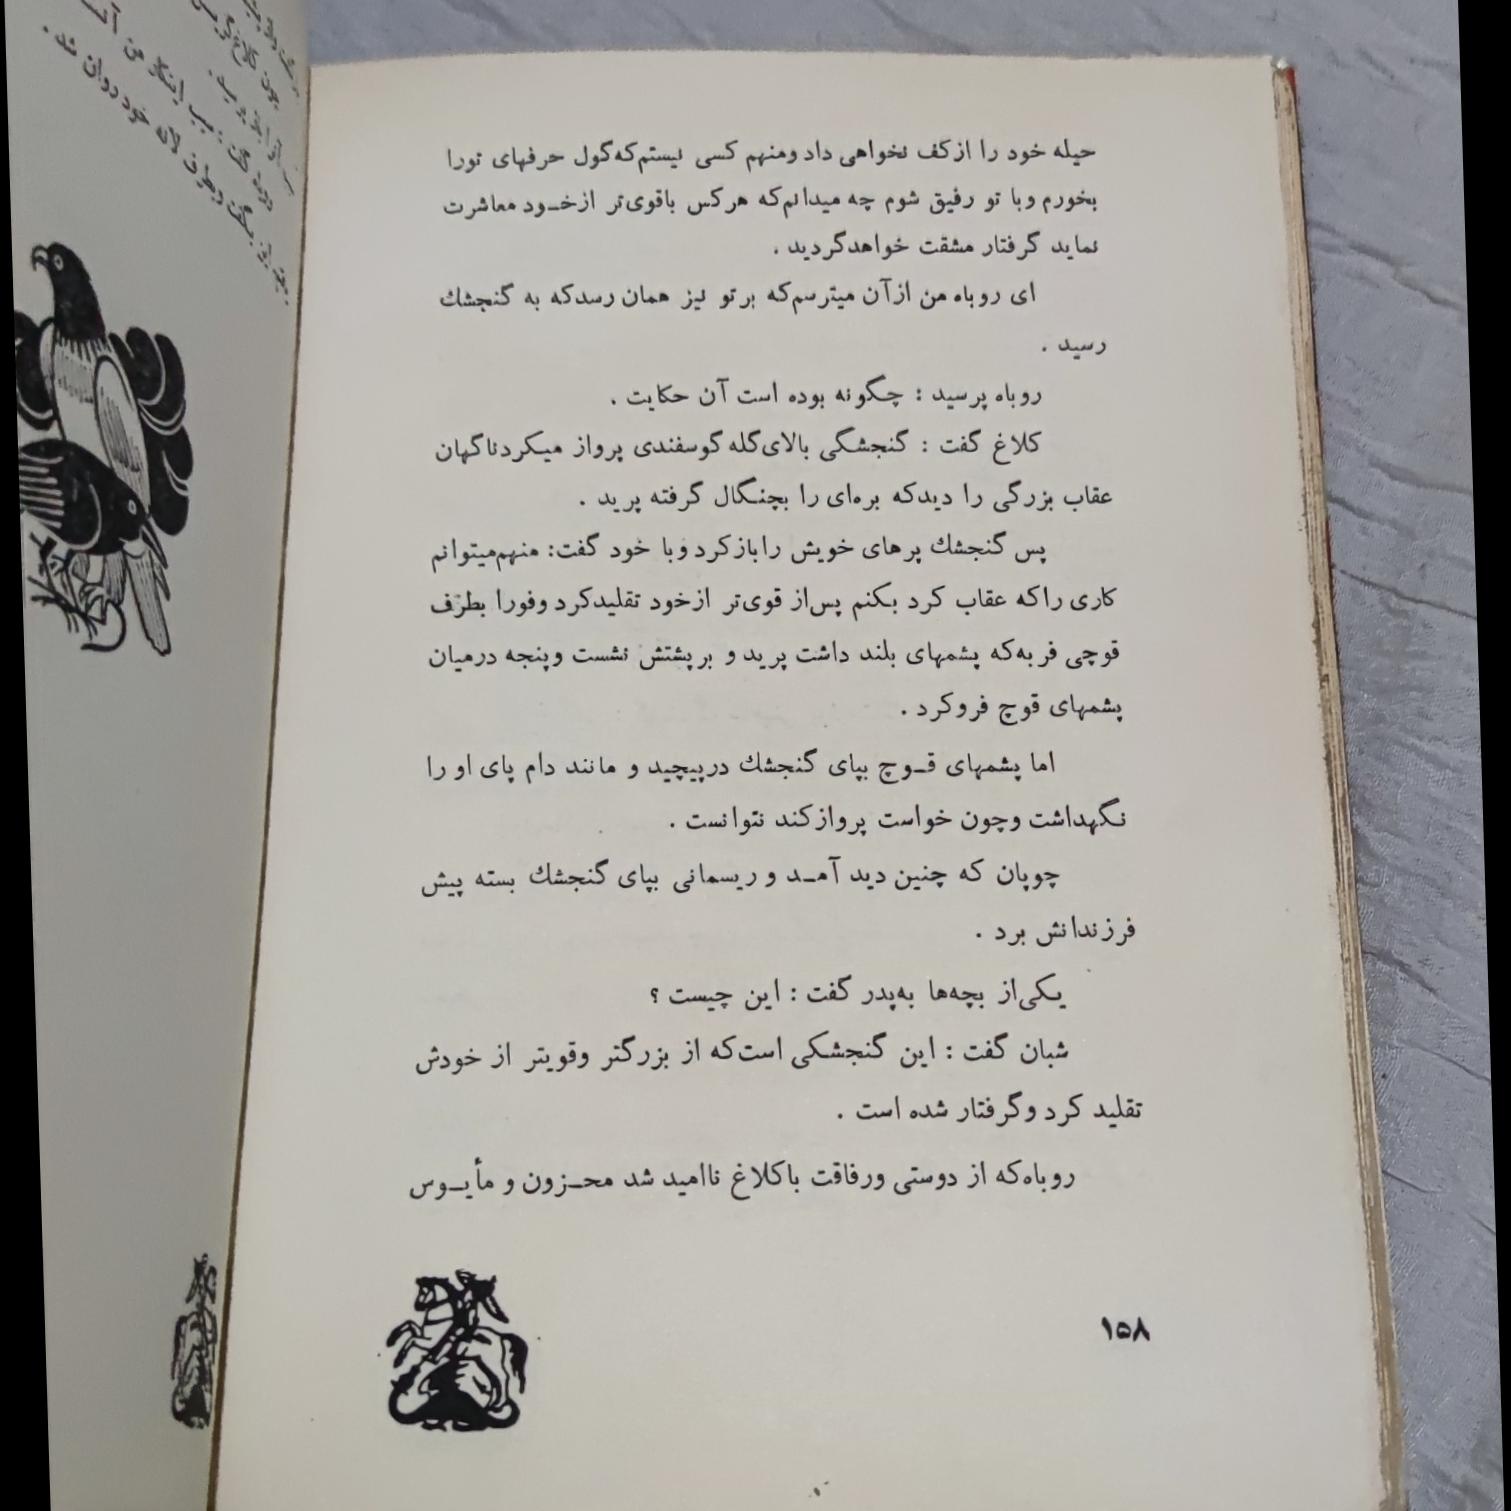 حیله خود را از کف نخواهی داد ومنهم کسی نیستم که گول حرفهای تورا
بخورم وبا تو رفیق شوم چه میدانم که هرکس باقوی‌تر ازخـود معاشرت
نماید گرفتار مشقت خواهدگردید .
ای روباه من ازآن میترسم که برتو نیز همان رسدکه به گنجشك
رسید .
روباه پرسید : چـگونه بوده است آن حکایت .
کلاغ گفت : گنجشگی بالای گله گوسفندی پرواز میـکردناگهان
عقاب بزرگی را دیدکه بره‌ای را بچنـگال گرفته پرید .
پس گنجشك پرهای خویش رابازکرد وبا خود گفت: منهم میتوانم
کاری راکه عقاب کرد بـکنم پس‌از قوی‌تر ازخود تقلیدکرد وفورا بطرف
قوچی فربه‌که پشمهای بلند داشت پرید و برپشتش نشست وپنجه درمیان
پشمهای قوچ فروکرد .
اما پشمهای قـوچ بپای گنجشك درپیچید و مانند دام پای او را
نـگهداشت وچون خواست پروازکند نتوانست .
چوپان که چنین دید آمـد و ریسمانی بپای گنجشك بسته پیش
فرزندانش برد .
یـکی‌از بچه‌ها به‌پدر گفت : این چیست ؟
شبان گفت : این گنجشکی است‌که از بزرگتر وقویتر از خودش
تقلید کرد وگرفتار شده است .
روباه‌که از دوستی ورفاقت باکلاغ ناامید شد محـزون و مأیـوس
۱۵۸